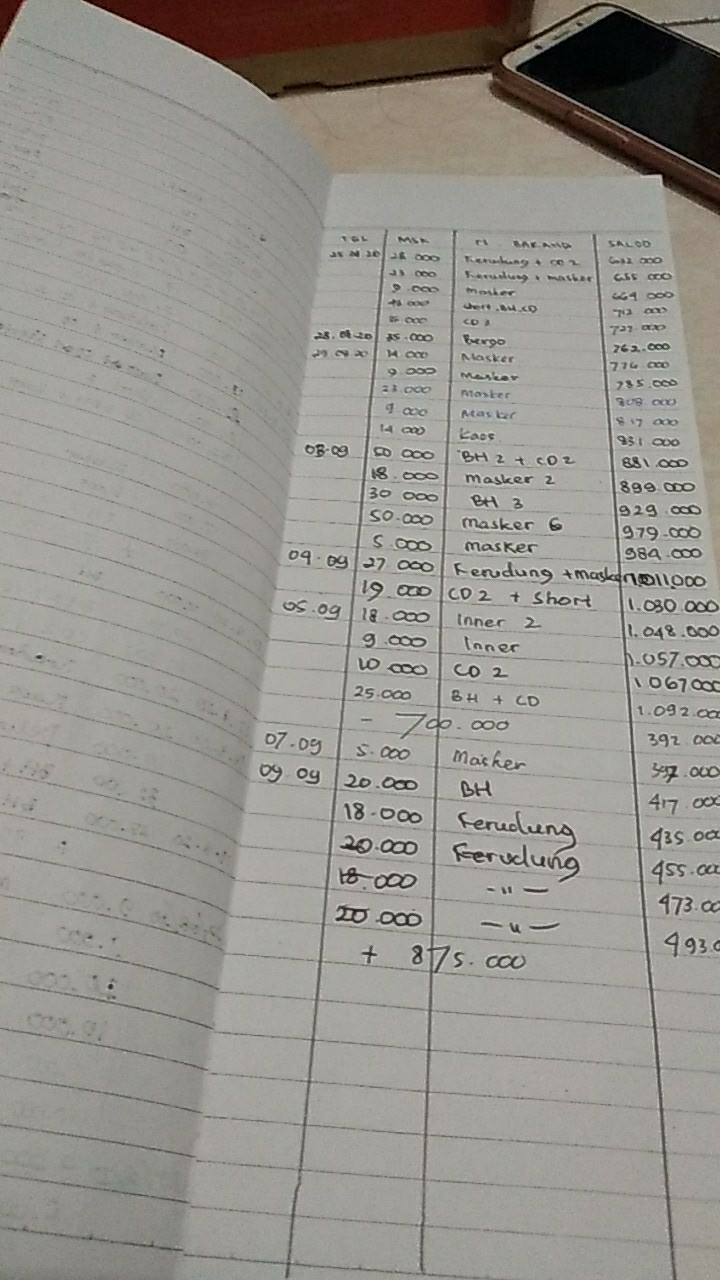 TGL MSK N. BARANG SALDO
25.08.20 28.000 Kerudung + CD 2 632.000
23.000 Kerudung + masker 655.000
9.000 masker 664.000
short, BH, CD 712.000
15.000 CD 3 727.000
28.08.20 35.000 Bergo 762.000
29.08.20 14.000 Masker 776.000
9.000 Masker 785.000
23.000 Masker 808.000
9.000 Masker 817.000
14.000 Kaos 831.000
03.09 50.000 BH 2 + CD 2 881.000
18.000 masker 2 899.000
30.000 BH 3 929.000
50.000 masker 6 979.000
5.000 masker 984.000
04.09 27.000 Kerudung + masker 1.011.000
19.000 CD 2 + short 1.030.000
05.09 18.000 Inner 2 1.048.000
9.000 Inner 1.057.000
10.000 CD 2 1.067.000
25.000 BH + CD 1.092.00
- 700.000 392.000
07.09 5.000 Masker 397.000
09.09 20.000 BH 417.000
18.000 Kerudung 435.00
20.000 Kerudung 455.00
18.000 -〃- 473.00
20.000 -〃- 493.0
+ 875.000